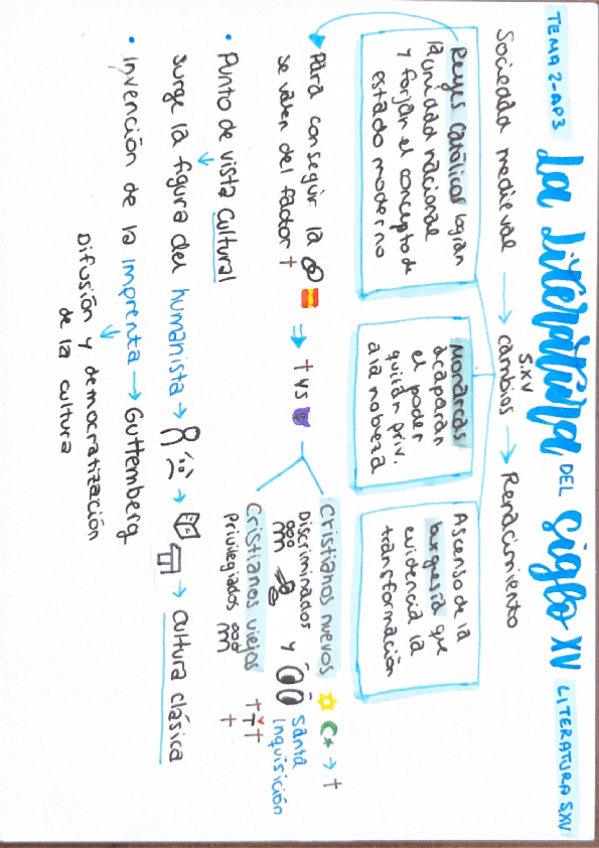 TEMA 2-AP3
La literatura DEL siglo XV
LITERATURA S.XV
Sociedad medieval → S.XV cambios → Renacimiento
Reyes Católicos logran
la unidad nacional
y forjan el concepto de
estado moderno
Monarcas
acaparan
el poder
quitan priv.
a la nobleza
Ascenso de la
burguesía que
evidencia la
transformación
Para conseguir la
se valen del factor †
→ † vs
Cristianos nuevos
→ †
Discriminados y
Santa
Inquisición
Cristianos viejos
Privilegiados
• Punto de vista cultural
surge la figura del humanista → → → cultura clásica
• Invención de la imprenta → Guttemberg
Difusión y democratización
de la cultura